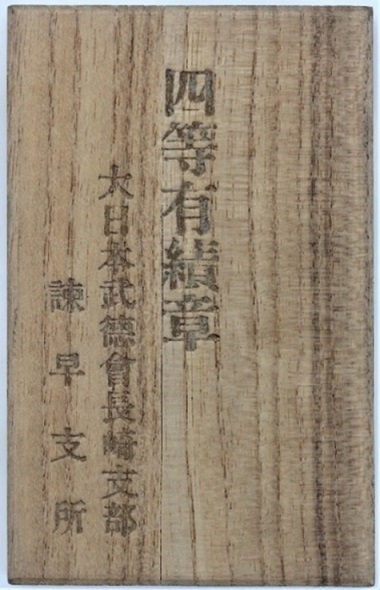 四等有績章
大日本武德會長崎支部
諫早支所